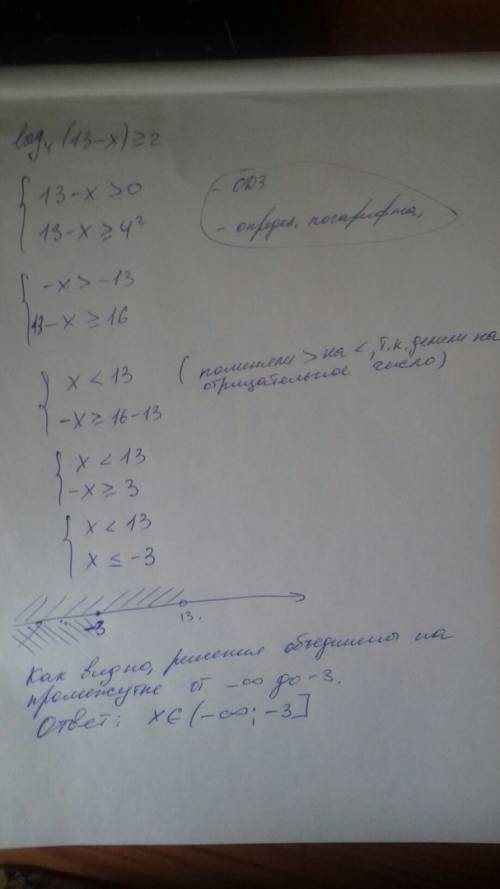 log₄(13-x)≥2
13-x>0 - ОДЗ
13-x≥4² - определ. логарифма.
-x>-13
13-x≥16
x<13 (поменяли > на <, т.к. делили на
отрицательное число)
-x≥16-13
x<13
-x≥3
x<13
x≤-3
-3 13.
Как видно, решения объединимы на
промежутке от -∞ до -3.
Ответ: x∈(-∞; -3]